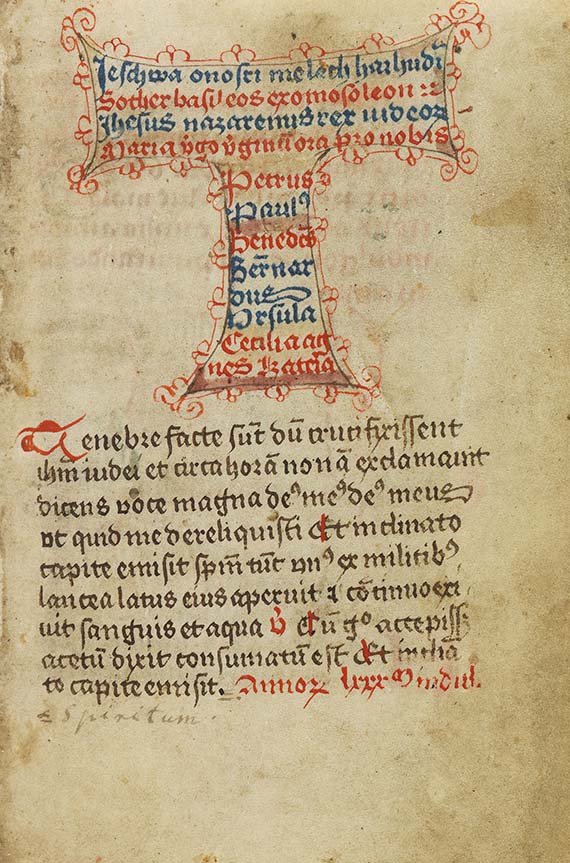 Jeschwa onosri melech haihudī
Sother basileos exomosoleon
Jhesus nazarenus rex iudeoꝝ
Maria v̄go v̄ginū ora pro nobis
Petrus
Paulꝰ
Benedc̄s
Bern̄ar
dus
Vrsula
Cecilia ag
nes Kater̄ia
Tenebre facte sūt dū crucifixissent
ihm̄ iudei et circa horā nonā exclamauit
dicens voce magna deꝰ meꝰ deꝰ meus
vt quid me dereliquisti Et inclinato
capite emisit spm̄ tūc vnꝰ ex militibꝰ
lancea latus eius aperuit ⁊ cōtinuo exi
uit sanguis et aqua V̄ Cū gͦ accepiss
acetū dixit consumatū est Et inclia
to capite emisit. Annoꝝ lxxxᵐ indul.
Spiritum.